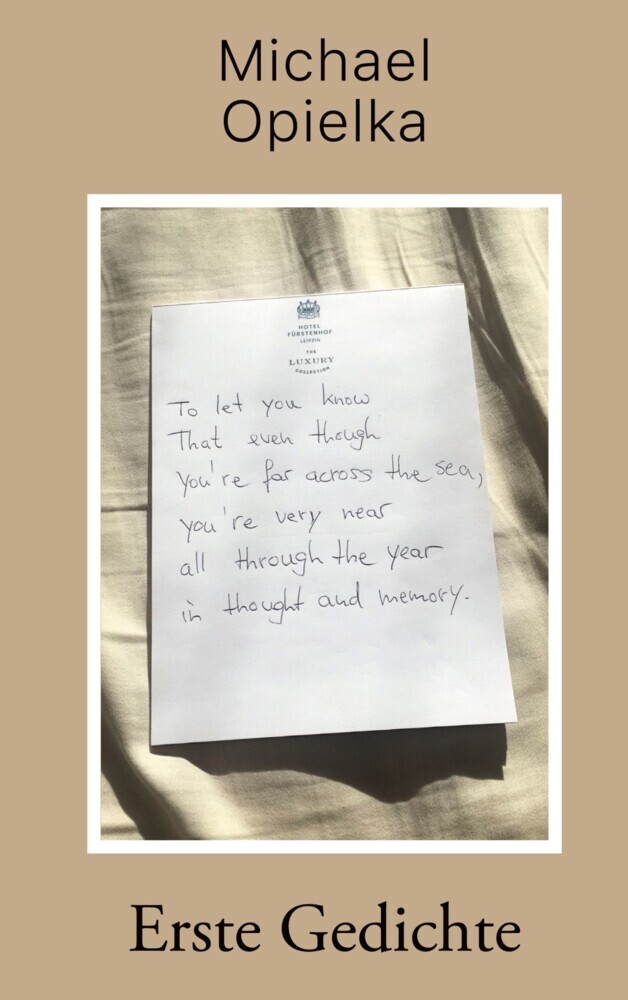 Michael
Opielka
HOTEL
FÜRSTENHOF
LEIPZIG
THE
LUXURY
COLLECTION
To let you know
That even though
you're far across the sea,
you're very near
all through the year
in thought and memory.
Erste Gedichte